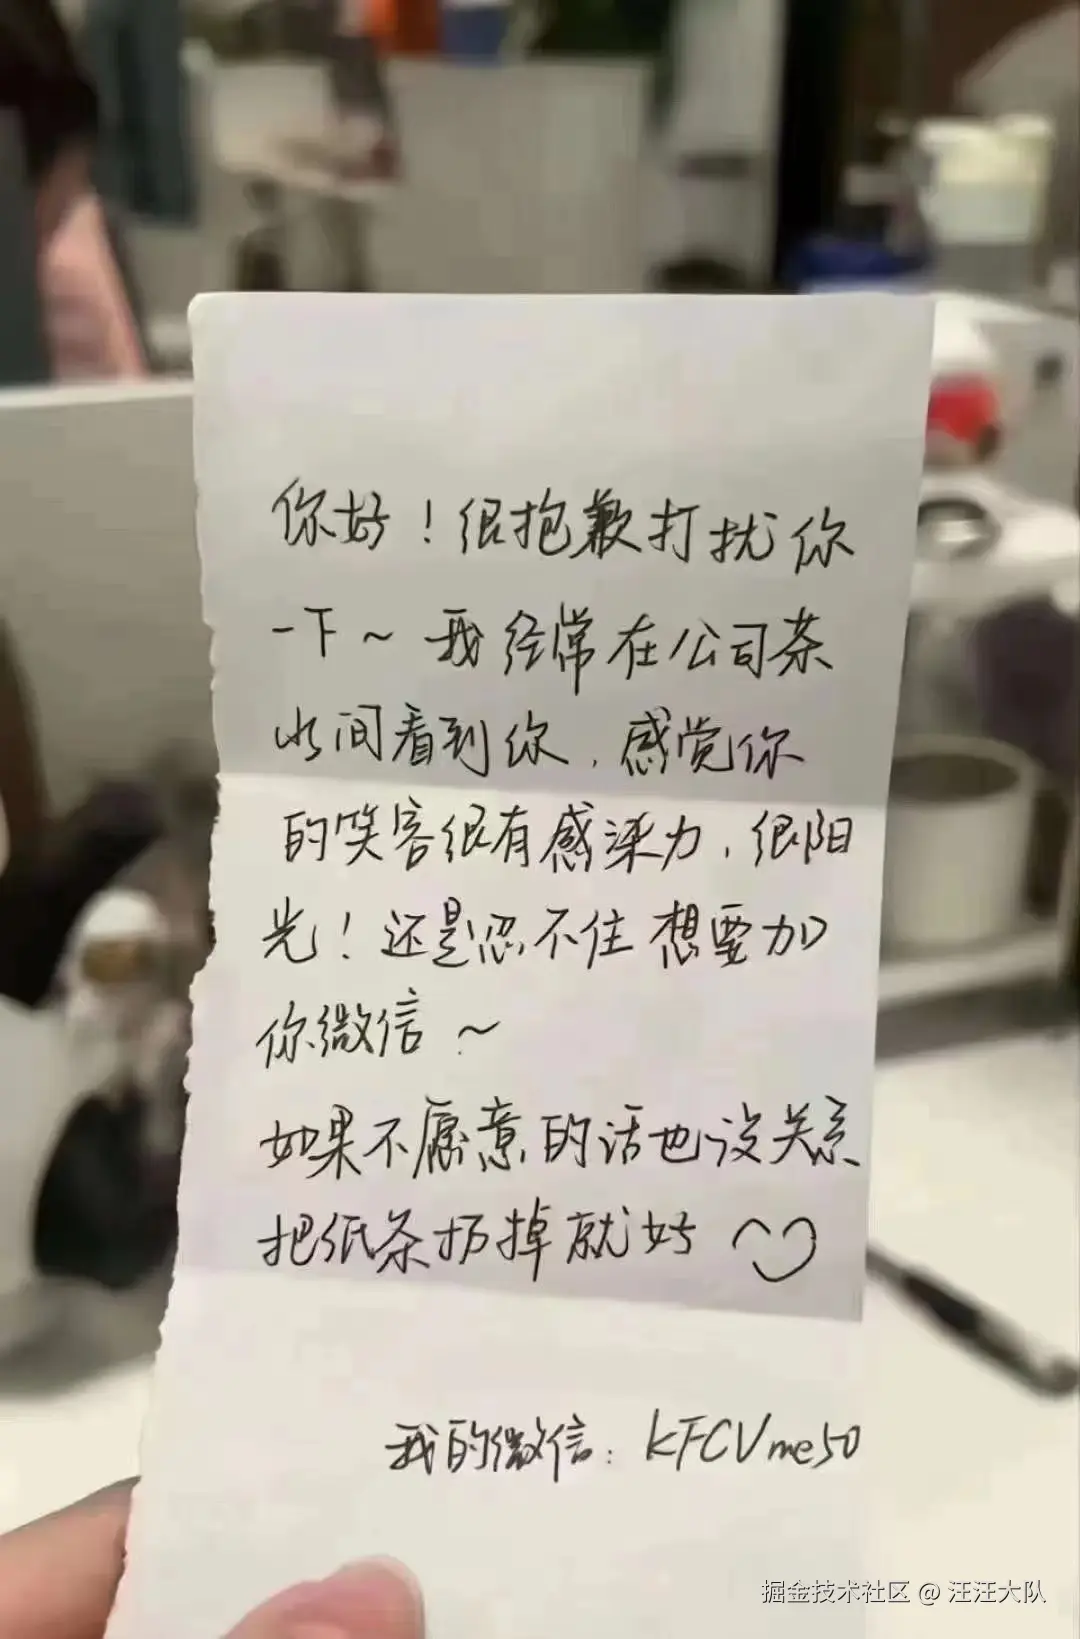 你好！很抱歉打扰你
一下～我经常在公司茶
水间看到你，感觉你
的笑容很有感染力，很阳
光！还是忍不住想要加
你微信～
如果不愿意的话也没关系
把纸条扔掉就好
我的微信：KFCVme50
掘金技术社区 @ 汪汪大队